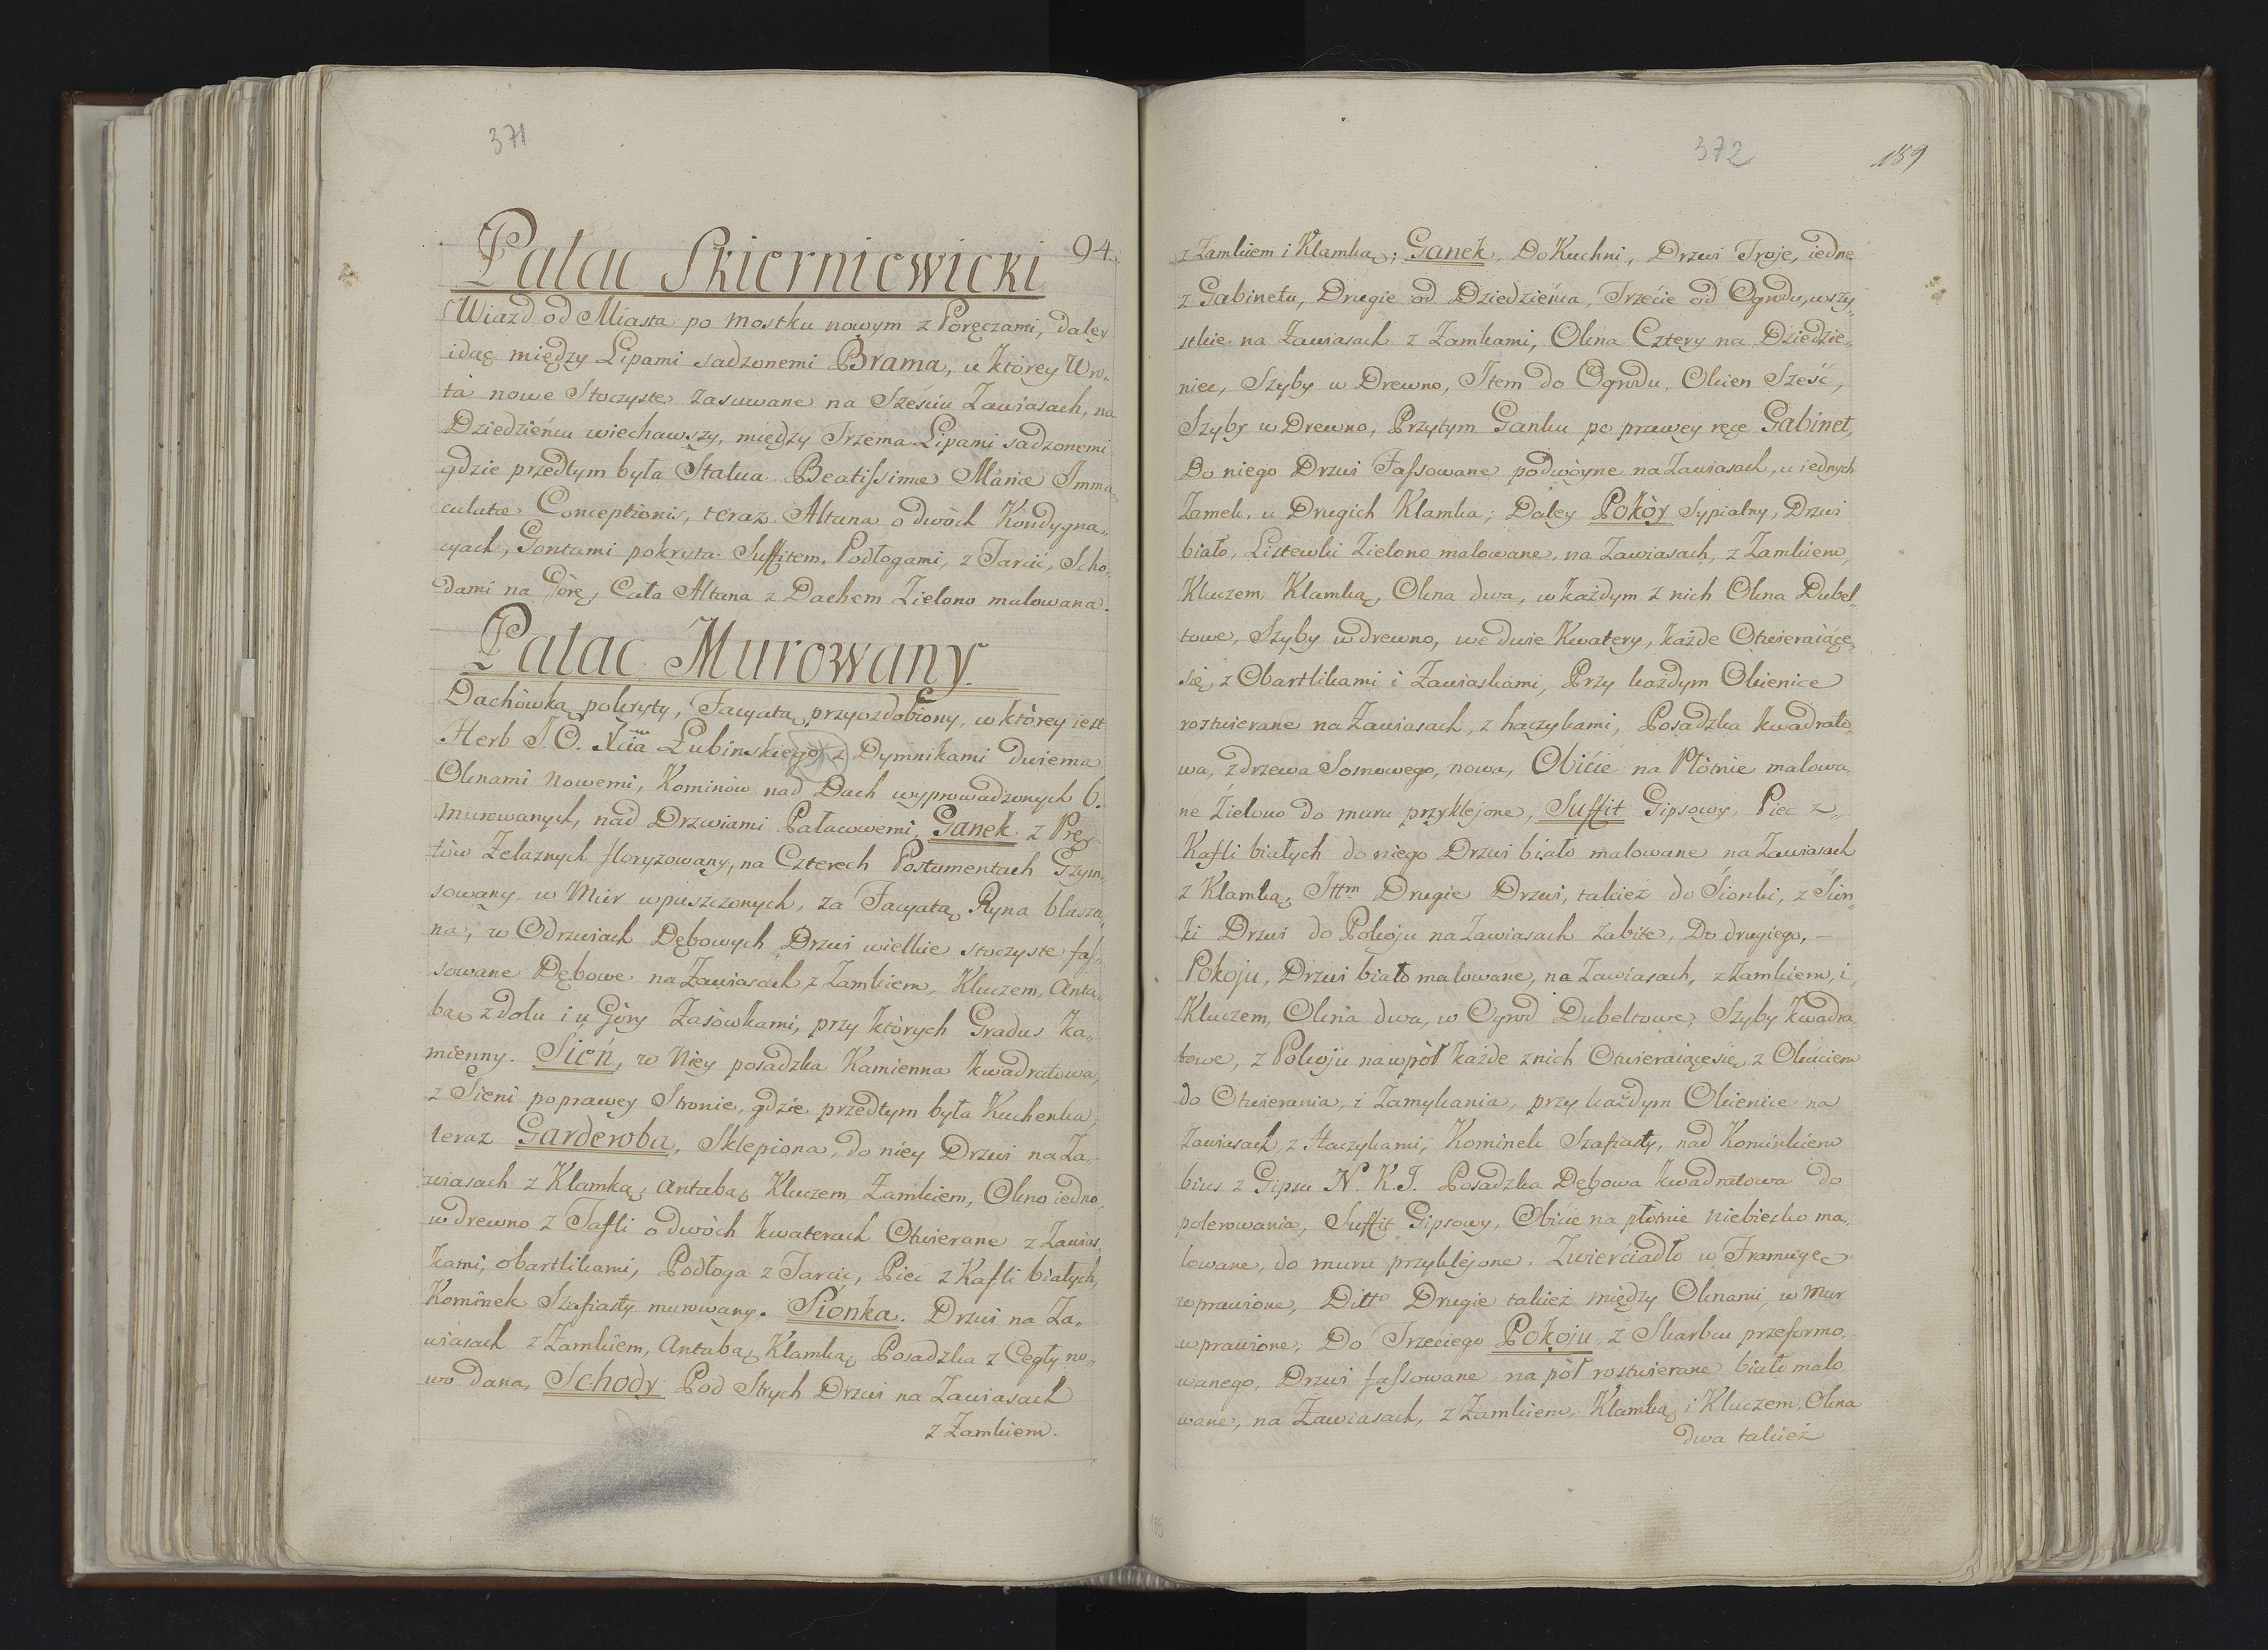 371
94.
Pałac Skierniewicki
Wiazd od Miasta po mostku nowym z Poręczami, daley
idąc między Lipami sadzonemi Brama, u którey Wro„
ta nowe Stoczyste zasuwane na Sześciu Zawiasach, na
Dziedzieńcu wiechawszy, między Trzema Lipami sadzonemi
gdzie przedtym była Statua Beatissimæ Mariæ Imma„
culatæ Conceptionis, teraz Altana o dwòch Kondygna„
cyach, Gontami pokryta Suffitem, Podłogami, z Tarcic, Scho„
dami na Górę, Cała Altana z Dachem Zielono malowana.
Pałac Murowany.
Dachòwką pokryty, Facyatą przyozdobiony, w którey iest
Herb J. O. Xcia Łubinskiego z Dymnikami dwiema
Oknami nowemi, Kominòw nad Dach wyprowadzonych 6.
murowanych, nad Drzwiami Pałacowemi, Ganek z Prę„
tòw Żelaznych floryzowany, na Czterech Postumentach Gzym„
sowany, w Mur wpuszczonych, za Facyatą Ryna blasza„
na, w Odrzwiach Dębowych Drzwi wielkie stoczyste fas„
sowane Dębowe na Zawiasach, z Zamkiem, Kluczem, Anta„
bą, z dołu i u Gòry Zasòwkami, przy których Gradus Ka„
mienny. Sień, w Niey posadzka Kamienna kwadratowa,
z Sieni po prawey Stronie, gdzie przedtym była Kuchenka,
teraz Garderoba, Sklepiona, do niey Drzwi na Za„
wiasach z Klamką, Antabą, Kluczem, Zamkiem, Okno iedno
w drewno z Tafli o dwòch kwaterach Otwierane z Zawias„
kami, obartlikami, Podłoga z Tarcic, Piec z Kafli białych,
Kominek Szafiasty murowany. Sionka. Drzwi na Za„
wiasach z Zamkiem, Antabą, Klamką, Posadzka z Cegły no„
wo dana, Schody Pod Strych Drzwi na Zawiasach
z Zamkiem.
372
189
z Zamkiem i Klamką; Ganek, Do Kuchni, Drzwi Troje, iedne
z Gabinetu, Drugie od Dziedzieńca, Trzecie od Ogrodu, wszy„
stkie na Zawiasach z Zamkami, Okna Cztery na Dziedzie„
niec, Szyby w Drewno, Item do Ogrodu, Okien Sześć,
Szyby w Drewno, Przytym Ganku po prawey ręce Gabinet,
Do niego Drzwi Fassowane podwòyne na Zawiasach, u iednych
Zamek, u Drugich Klamka; Daley Pokòy Sypialny, Drzwi
biało, Listewki Zielono malowane, na Zawiasach, z Zamkiem,
Kluczem, Klamką, Okna dwa, w każdym z nich Okna Dubel„
towe, Szyby w drewno, we dwie Kwatery, każde Otwieraiące„
się, z Obartlikami i Zawiaskami, Przy każdym Okienice
rostwierane na Zawiasach, z haczykami, Posadzka kwadrato„
wa, z drzewa Sosnowego, nowa, Obicie na Płòtnie malowa„
ne Zielono do muru przyklejone, Suffit Gipsowy, Piec z„
Kafli białych do niego Drzwi biało malowane na Zawiasach
z Klamką, Ittm Drugie Drzwi, takież do Sionki, z Sion„
ki Drzwi do Pokoju na Zawiasach zabite, Do drugiego, —
Pokoju, Drzwi biało malowane, na Zawiasach, z Zamkiem, i,
Kluczem, Okna dwa, w Ogrod Dubeltowe, Szyby kwadra„
towe, z Pokoju na wpòł każde z nich Otwieraiące się, z Okuciem
do Otwierania, i Zamykania, przy każdym Okienice na
Zawiasach, z Haczykami, Kominek Szafiasty, nad Kominkiem
bius z Gipsu N. K. J. Posadzka Dębowa kwadratowa do
polerowania, Suffit Gipsowy, Obicie na płòtnie niebiesko ma„
lowane, do muru przyklejone, Zwierciadło w Framugę
wprawione, Ditto Drugie takież między Oknami, w mur
wprawione, Do Trzeciego Pokoju, z Skarbcu przeformo„
wanego, Drzwi fassowane na pòł rostwierane biało malo„
wane, na Zawiasach, z Zamkiem, Klamką, i Kluczem, Okna
dwa takież
189